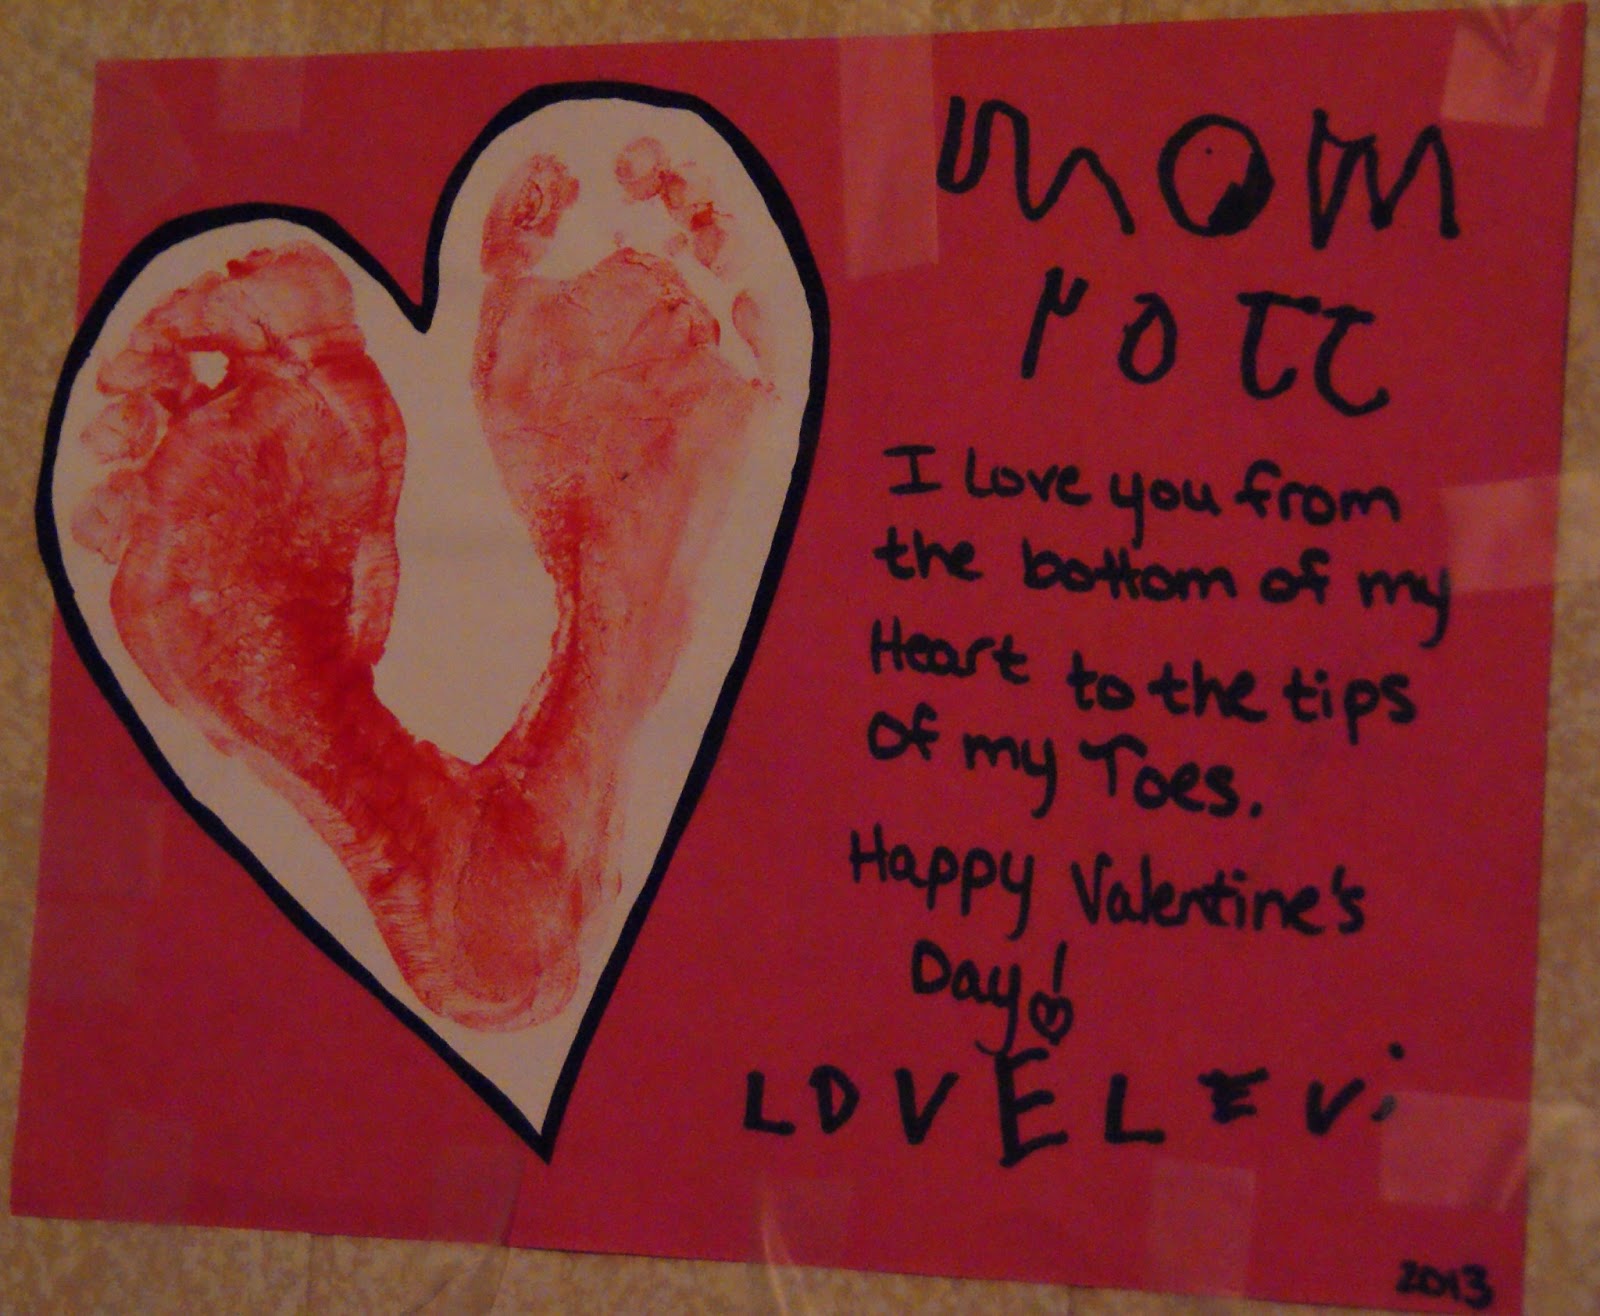 mom
I Love you from
the bottom of my
Heart to the tips
Of my Toes.
Happy Valentine's
Day!
LOVE LEVi
2013